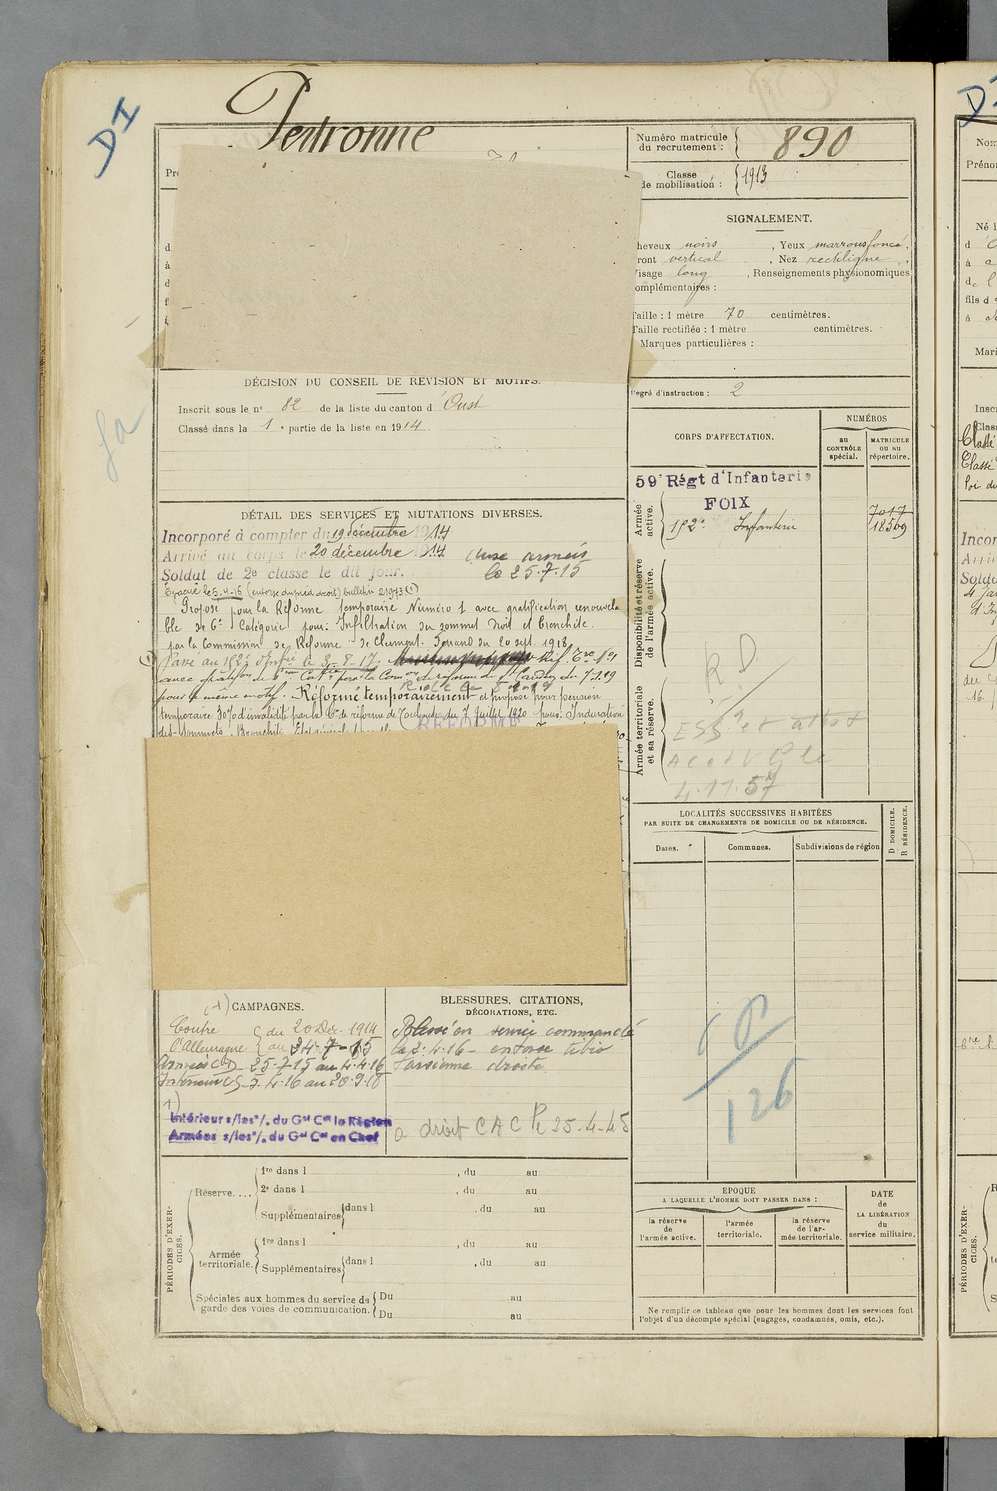 DI
Pentronne
Numéro matricule du recrutement : 890
Classe de mobilisation : 1913
SIGNALEMENT.
heveux noirs , Yeux marrons foncé ,
ront vertical , Nez rectiligne ,
isage long , Renseignements physionomiques
omplémentaires :
Taille : 1 mètre 70 centimètres.
Taille rectifiée : 1 mètre centimètres.
Marques particulières :
Degré d'instruction : 2
DÉCISION DU CONSEIL DE REVISION ET MOTIFS.
Inscrit sous le n° 82 de la liste du canton d'Oust
Classé dans la 1e partie de la liste en 1914
CORPS D'AFFECTATION.
NUMÉROS
au CONTRÔLE spécial.
MATRICULE ou au répertoire.
59e Régt d'Infanterie
FOIX
Armée active.
7017
192e Infanterie 18569
Disponibilité et réserve de l'armée active.
RD
Armée territoriale et sa réserve.
4.11.57
DÉTAIL DES SERVICES ET MUTATIONS DIVERSES.
Incorporé à compter du 19 décembre 1914
Arrivé au corps le 20 décembre 1914
Soldat de 2e classe le dit jour.
aux armées
le 25.7.15
Evacué le 5.4.16 (entorse du pied droit) bulletin 21973 (1)
Proposé pour la Réforme temporaire Numéro 1 avec gratification renouvela
ble de 6e Catégorie pour: Infiltration du sommet droit et bronchite.
par la Commission de Réforme de Clermont-Ferrand du 20 sept. 1918
Passé au 192e d'Inf le 3.8.17.
pour le même motif. Réformé temporairement et proposé pour pension
temporaire 30% d'invalidité par la Con de réforme de Toulouse du 7 Juillet 1920 pour: Induration
des Sommets. Bronchite.
RÉFORME
LOCALITÉS SUCCESSIVES HABITÉES
PAR SUITE DE CHANGEMENTS DE DOMICILE OU DE RÉSIDENCE.
Dates.
Communes.
Subdivisions de région
D DOMICILE.
R RÉSIDENCE.
(1) CAMPAGNES.
Contre du 20 Dec. 1914
l'Allemagne au 24-7-15
Armées CD 25-7-15 au 4-4-16
Intérieur CS 5.4.16 au 20.9.18
Intérieur s/les o/. du Gal Ct la Région
Armées s/les o/. du Gal Ct en Chef
BLESSURES, CITATIONS,
DÉCORATIONS, ETC.
Blessé en service commandé
le 2.4.16 - entorse tibio
tarsienne droite
a droit CAC 25-4-45
126
PÉRIODES D'EXERCICES.
Réserve....
1re dans l , du au
2e dans l , du au
Supplémentaires dans l , du au
Armée territoriale.
1re dans l , du au
Supplémentaires dans l , du au
Spéciales aux hommes du service de garde des voies de communication.
Du au
Du au
EPOQUE
A LAQUELLE L'HOMME DOIT PASSER DANS :
la réserve de l'armée active.
l'armée territoriale.
la réserve de l'armée territoriale.
DATE de LA LIBÉRATION du service militaire.
Ne remplir ce tableau que pour les hommes dont les services font
l'objet d'un décompte spécial (engagés, condamnés, omis, etc.).